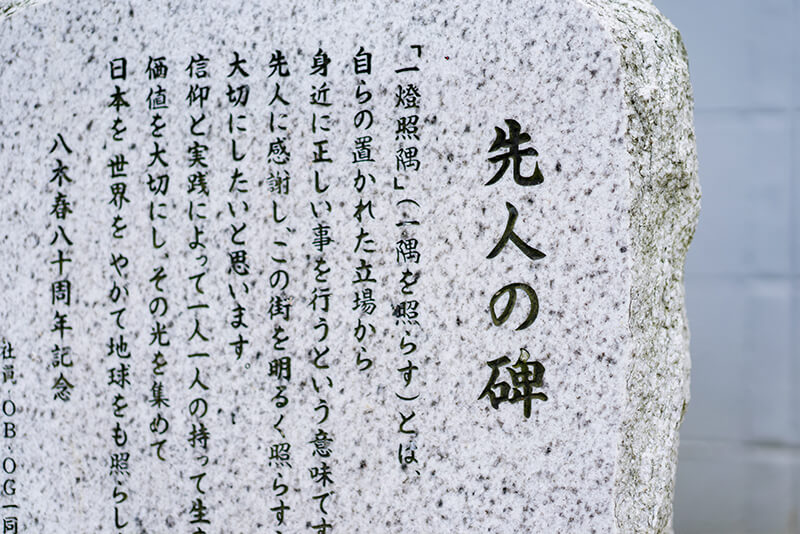 先人の碑
「一燈照隅」(一隅を照らす)とは、
自らの置かれた立場から
身近に正しい事を行うという意味です
先人に感謝し、この街を明るく照らす
大切にしたいと思います。
信仰と実践によって一人一人の持って生
価値を大切にし、その光を集めて
日本を 世界を やがて地球をも照らし
八木春八十周年記念
社員・OB・OG一同